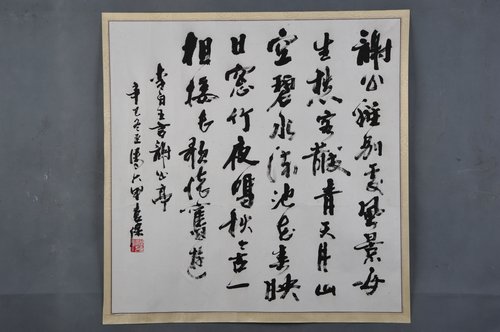 謝公離別處風景每
生愁客散青天月山
空碧水流池花春映
日窗竹夜鳴秋今古一
相接長歌懷舊遊
李白五言謝公亭
辛巳冬至